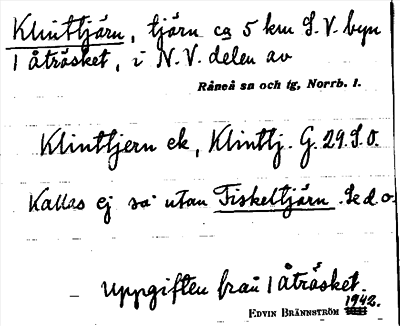 Klinttjärn, tjärn ca 5 km S.V. byn
1 Åträsket, i N.V. delen av
Råneå sn och tg, Norrb. l.
Klinttjern ek, Klinttj. G.29.S.O.
Kallas ej så utan Fiskeltjärn. Se d.o.
Uppgiften från 1 Åträsket.
EDVIN BRÄNNSTRÖM 1942.